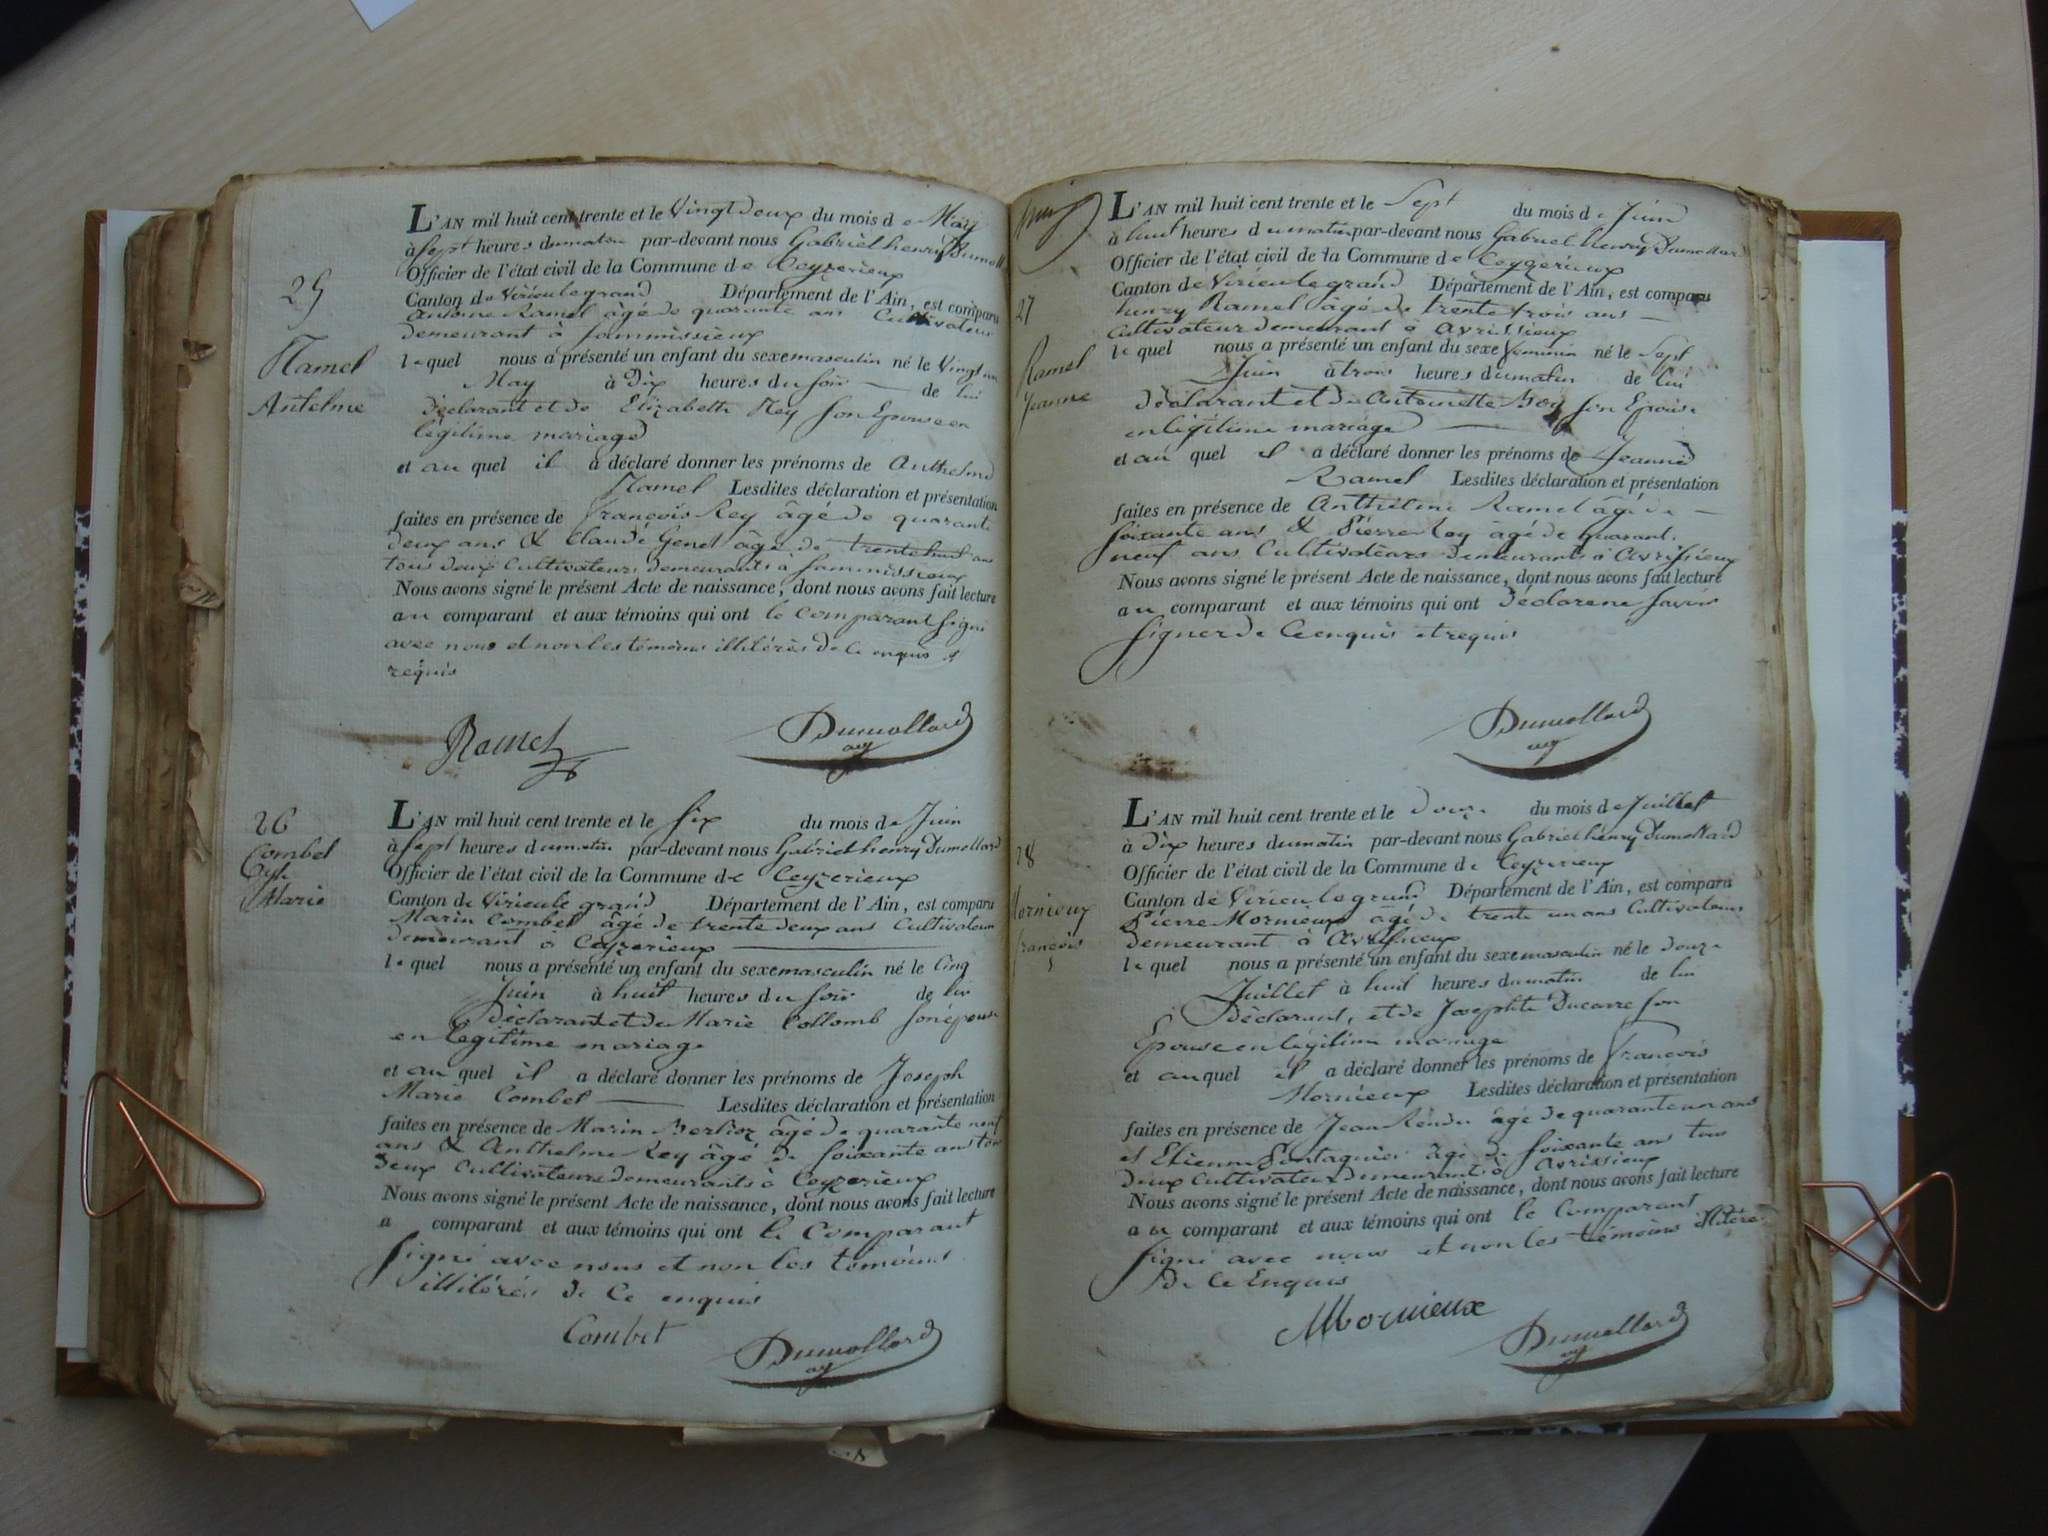 25
Ramel
Antelme
L'AN mil huit cent trente et le Vingt Deux du mois de May
à Sept heures du matin par-devant nous Gabriel henry Dumoll
Officier de l'état civil de la Commune de Ceyzerieux
Canton de Virieu le grand Département de l'Ain, est comparu
Antoine Ramel âgé de quarante ans Cultivateur
demeurant à
le quel nous a présenté un enfant du sexe masculin né le Vingt un
May à Dix heures du soir de lui
déclarant et de Elizabeth Rey son Epouse en
légitime mariage
et au quel il a déclaré donner les prénoms de Anthelme
Ramel Lesdites déclaration et présentation
faites en présence de françois Rey âgé de quarante
deux ans & Claude Genet âgé de trente huit ans
tous deux Cultivateurs demeurants à
Nous avons signé le présent Acte de naissance, dont nous avons fait lecture
au comparant et aux témoins qui ont le comparant signé
avec nous et non les témoins illitérés de ce enquis et
requis
Ramel Dumollard
26
Combet
Marie
L'AN mil huit cent trente et le Six du mois de Juin
à Sept heures du matin par-devant nous Gabriel henry Dumollard
Officier de l'état civil de la Commune de Ceyzerieux
Canton de Virieu le grand Département de l'Ain, est comparu
Marin Combet âgé de trente deux ans Cultivateur
demeurant à Ceyzerieux
le quel nous a présenté un enfant du sexe masculin né le Cinq
Juin à huit heures du soir de lui
Déclarant et de Marie Collomb son épouse
en légitime mariage
et au quel il a déclaré donner les prénoms de Joseph
Marie Combet Lesdites déclaration et présentation
faites en présence de Marin Berlioz âgé de quarante neuf
ans & Anthelme Rey âgé de soixante ans tous
deux Cultivateurs demeurants à Ceyzerieux
Nous avons signé le présent Acte de naissance, dont nous avons fait lecture
a comparant et aux témoins qui ont le Comparant
signé avec nous et non les témoins
illitérés de Ce enquis
Combet Dumollard
27
Ramel
Jeanne
L'AN mil huit cent trente et le Sept du mois de Juin
à huit heures du matin par-devant nous Gabriel henry Dumollard
Officier de l'état civil de la Commune de Ceyzerieux
Canton de Virieu le grand Département de l'Ain, est comparu
henry Ramel âgé de trente trois ans
Cultivateur demeurant à Avrissieux
le quel nous a présenté un enfant du sexe féminin né le Sept
Juin à trois heures du matin de lui
déclarant et de Antoinette Roy son Epouse
en légitime mariage
et au quel il a déclaré donner les prénoms de Jeanne
Ramel Lesdites déclaration et présentation
faites en présence de Anthelme Ramel âgé de
soixante ans & Pierre Roy âgé de quarante
neuf ans Cultivateurs demeurants à Avrissieux
Nous avons signé le présent Acte de naissance, dont nous avons fait lecture
au comparant et aux témoins qui ont déclaré ne savoir
signer de Ce enquis et requis
Dumollard
28
Mornieux
françois
L'AN mil huit cent trente et le douze du mois de Juillet
à Dix heures du matin par-devant nous Gabriel henry Dumollard
Officier de l'état civil de la Commune de Ceyzerieux
Canton de Virieu le grand Département de l'Ain, est comparu
Pierre Mornieux âgé de trente un ans Cultivateur
demeurant à Avrissieux
le quel nous a présenté un enfant du sexe masculin né le douze
Juillet à huit heures du matin de lui
Déclarant, et de Josephte Ducarre son
Epouse en légitime mariage
et au quel il a déclaré donner les prénoms de françois
Mornieux Lesdites déclaration et présentation
faites en présence de Jean Rendu âgé de quarante un ans
et Etienne Pontagnier âgé de soixante ans tous
deux Cultivateur demeurant à Avrissieux
Nous avons signé le présent Acte de naissance, dont nous avons fait lecture
au comparant et aux témoins qui ont le Comparant
signé avec nous et non les témoins illitérés
de Ce Enquis
Mornieux Dumollard